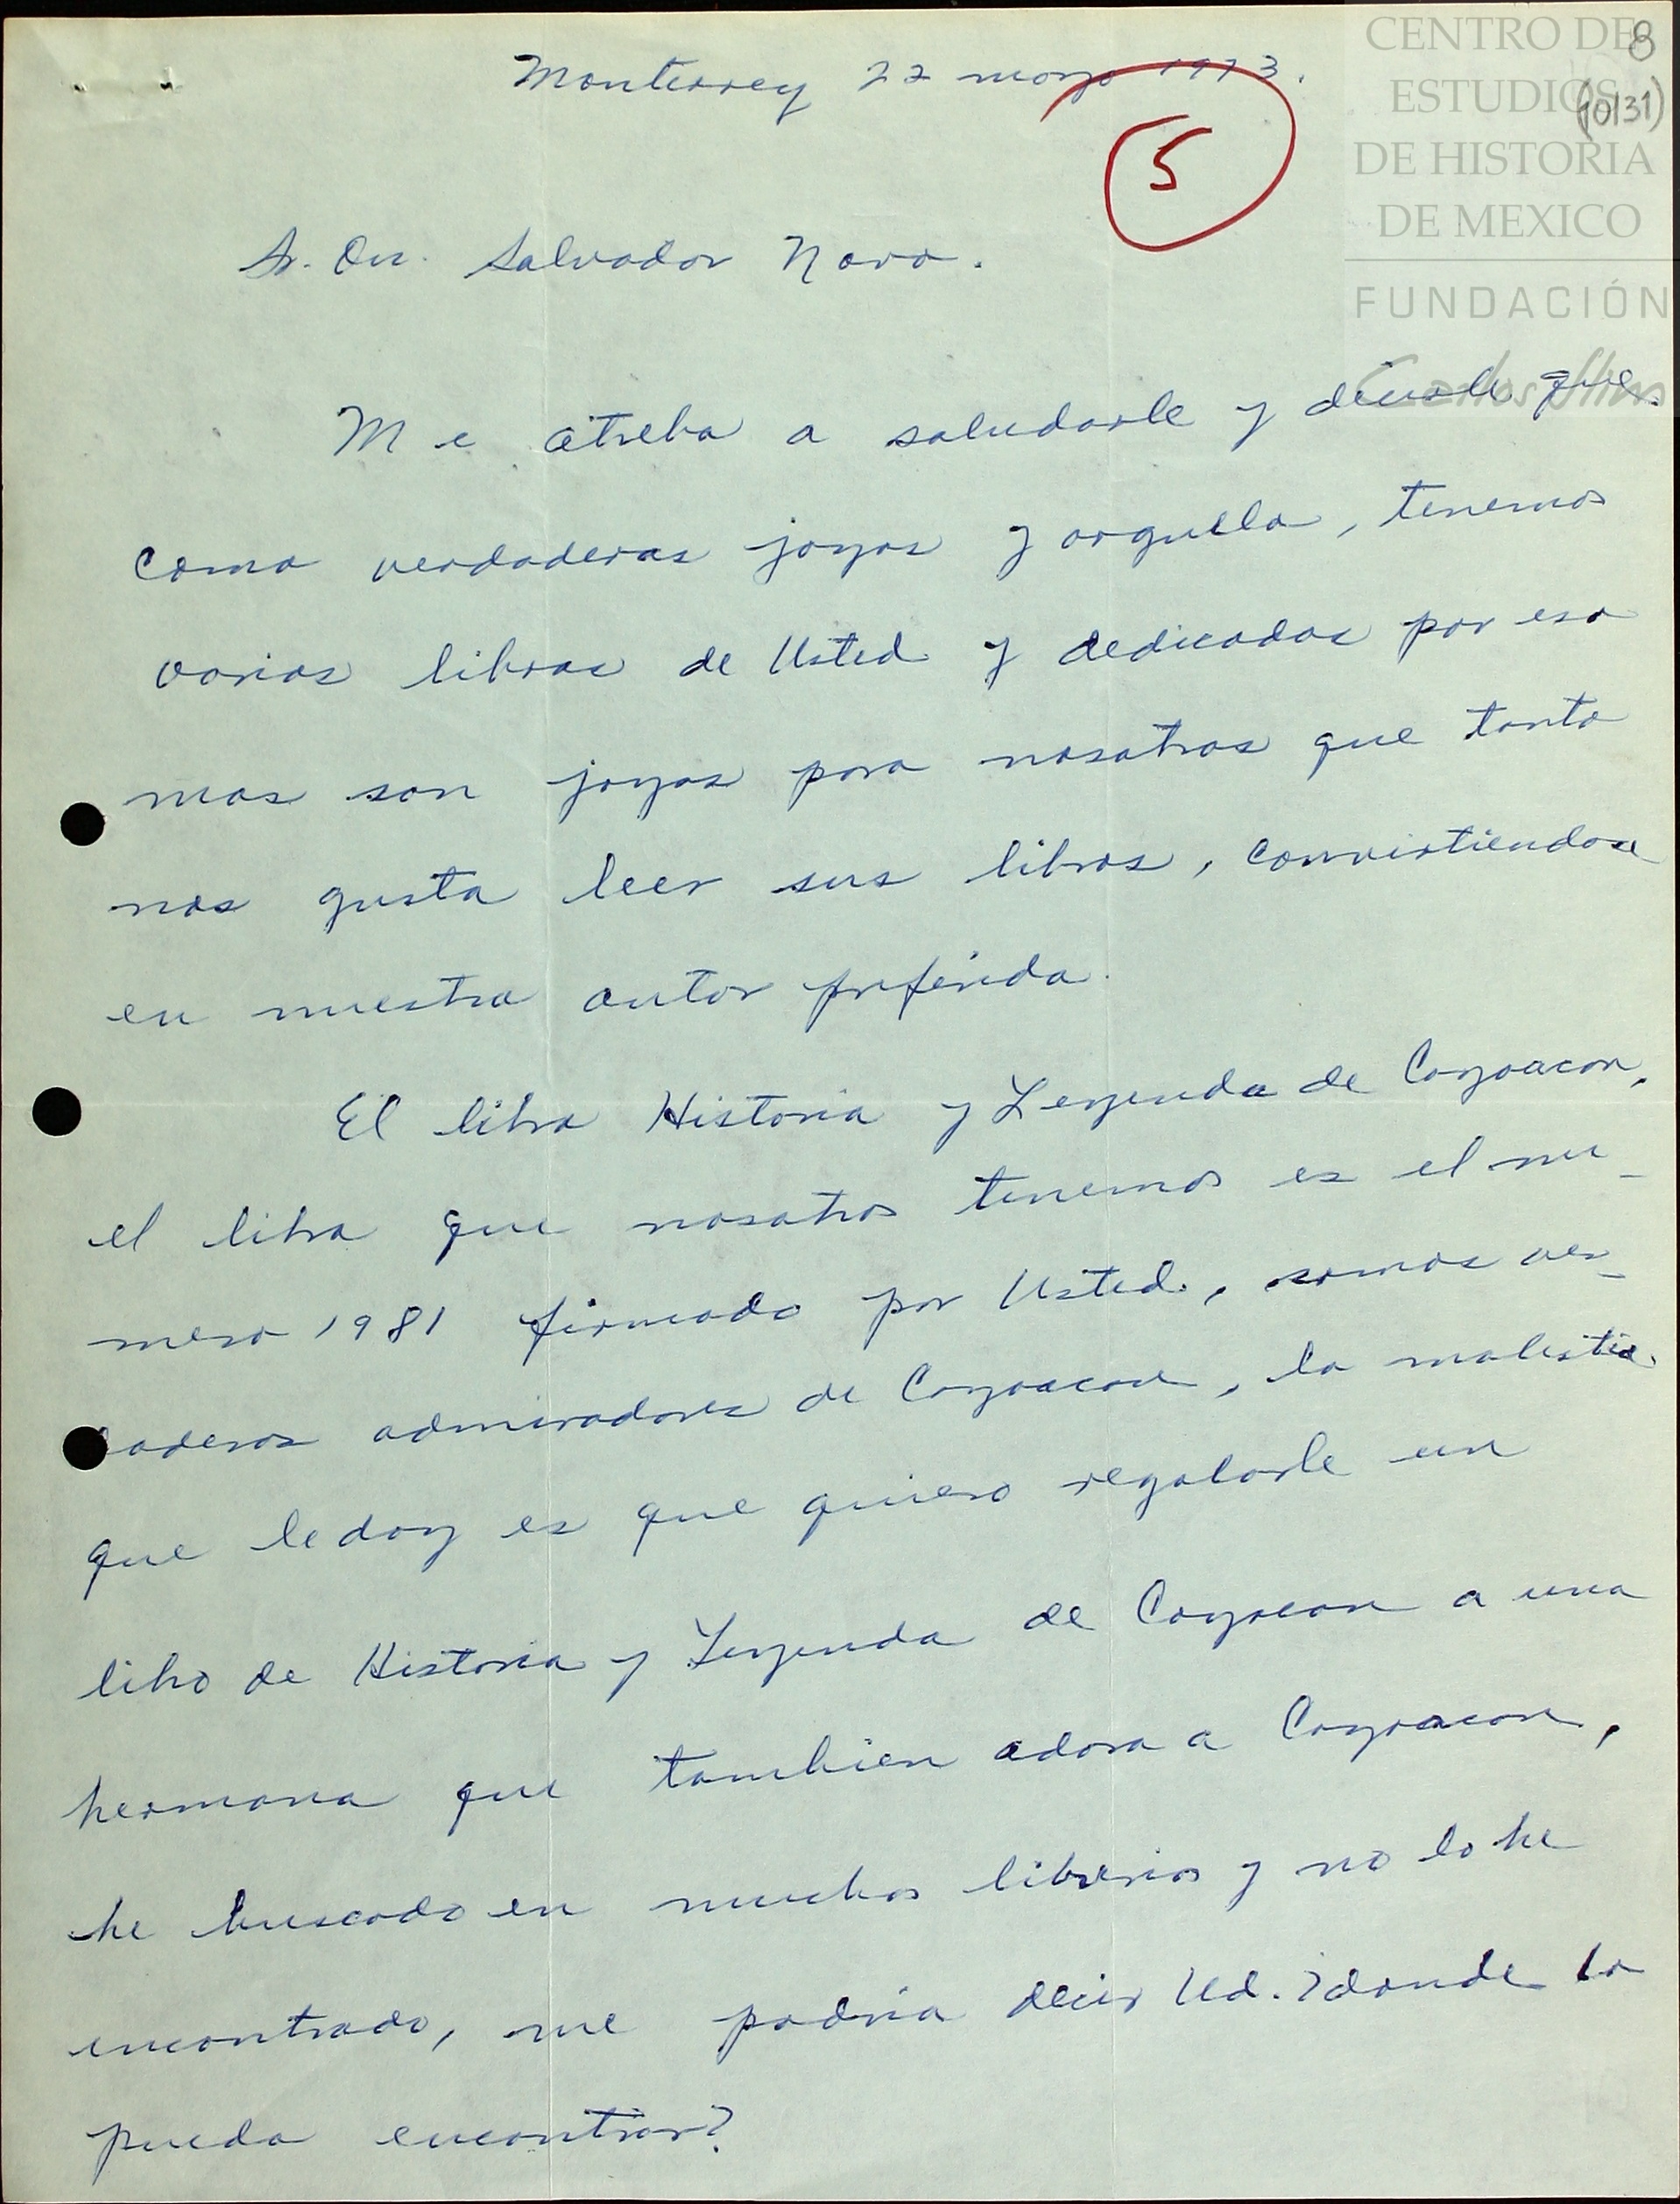 CENTRO DE
ESTUDIOS
DE HISTORIA
DE MEXICO
FUNDACIÓN
Carlos Slim
8
(10/31)
Monterrey 22 mayo 1973.
5
Sr. Dn. Salvador Novo.
Me atrebo a saludarle y decirle que
como verdaderas joyas y orgullo, tenemos
varios libros de Usted y dedicados por eso
mas son joyas para nosotros que tanto
nos gusta leer sus libros, convirtiendose
en nuestro autor preferido.
El libro Historia y Leyenda de Coyoacan,
el libro que nosotros tenemos es el nu-
mero 1981 firmado por Usted, somos ver-
daderos admiradores de Coyoacan, la molestia
que le doy es que quiero regalarle un
libro de Historia y Leyenda de Coyoacan a una
hermana que tambien adora a Coyoacan,
he buscado en muchas librerias y no lo he
encontrado, me podria decir Ud. ?donde lo
puedo encontrar?